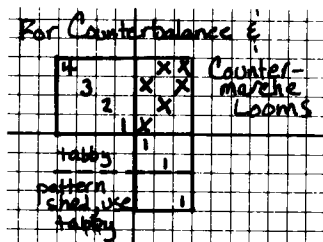 For Counterbalance &
Counter-
marche
Looms
4 X X
3 X X
2 X
1 X
tabby 1
1
pattern
shed, use 1
tabby